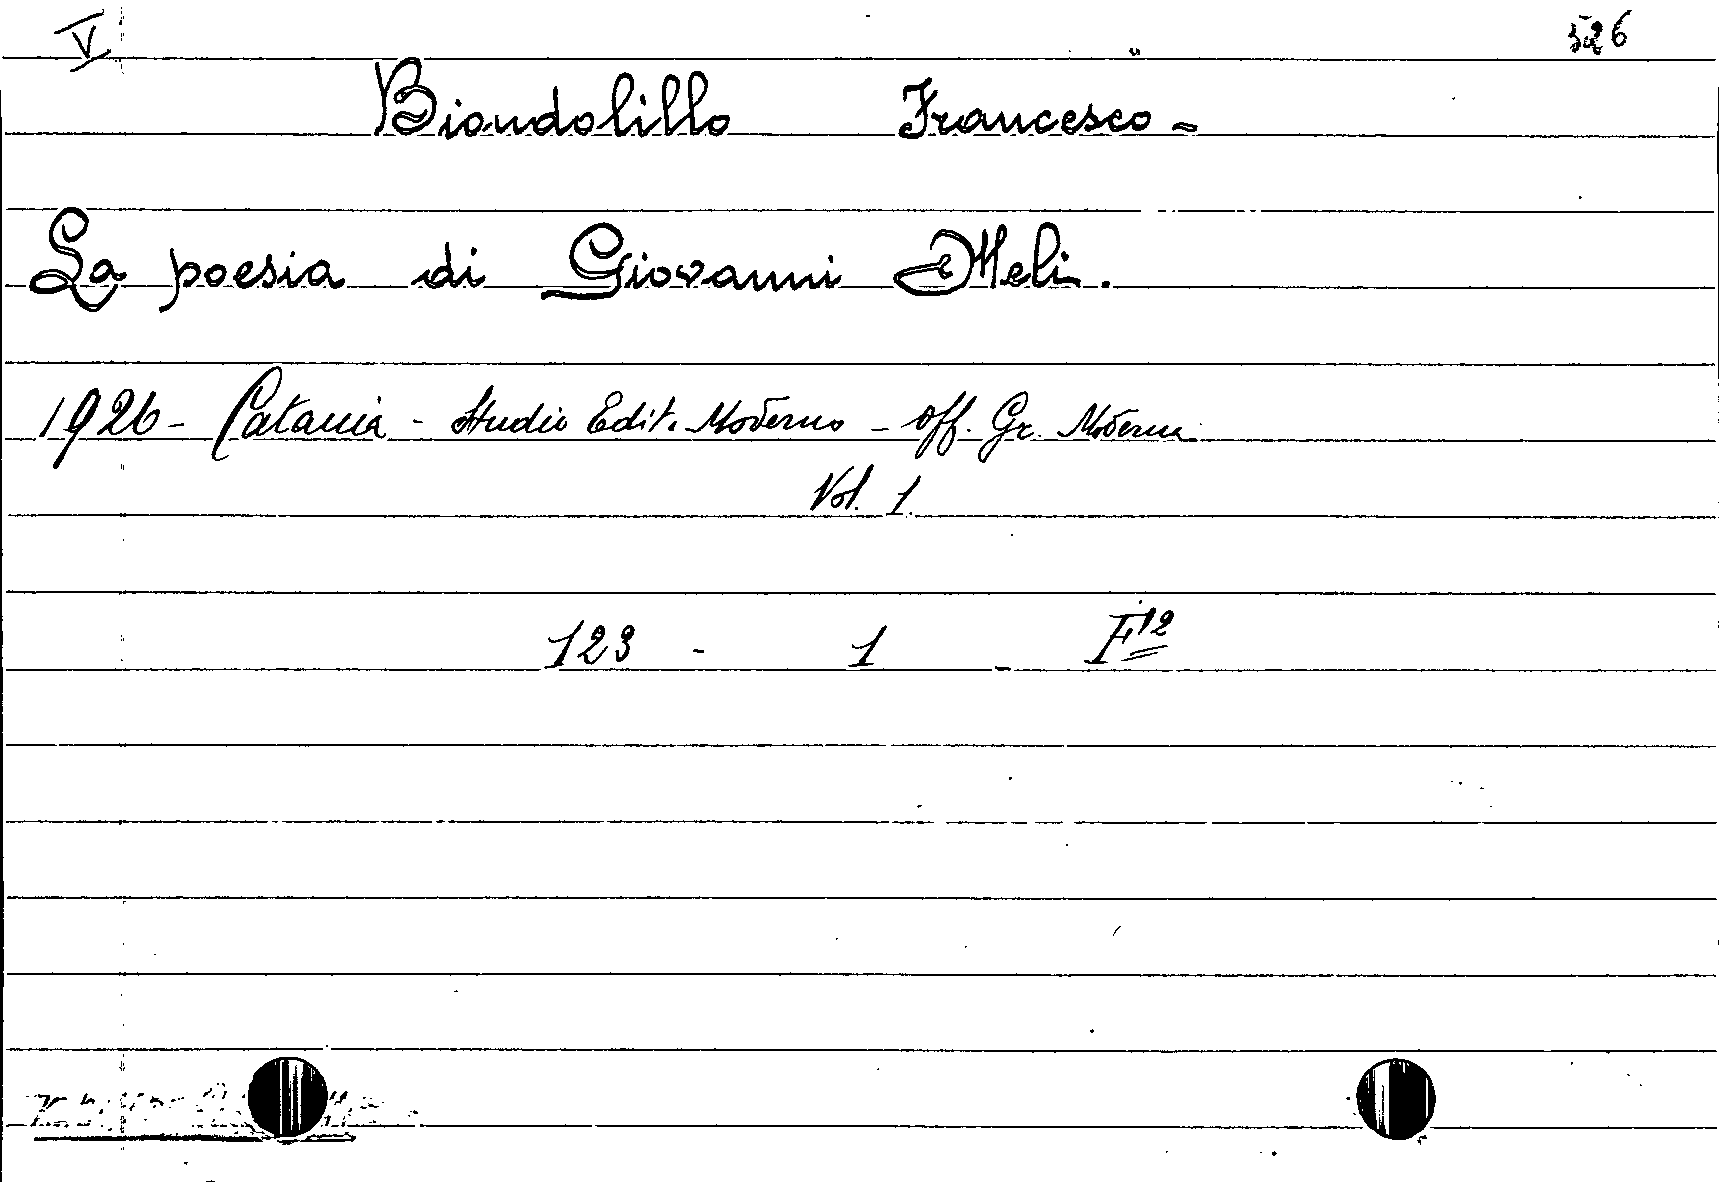 V 526
Biondolillo Francesco -
La poesia di Giovanni Meli.
1926 - Catania - Studio Edit. Moderno - Off. Gr. Moderna
Vol. 1.
123 - 1 - F12